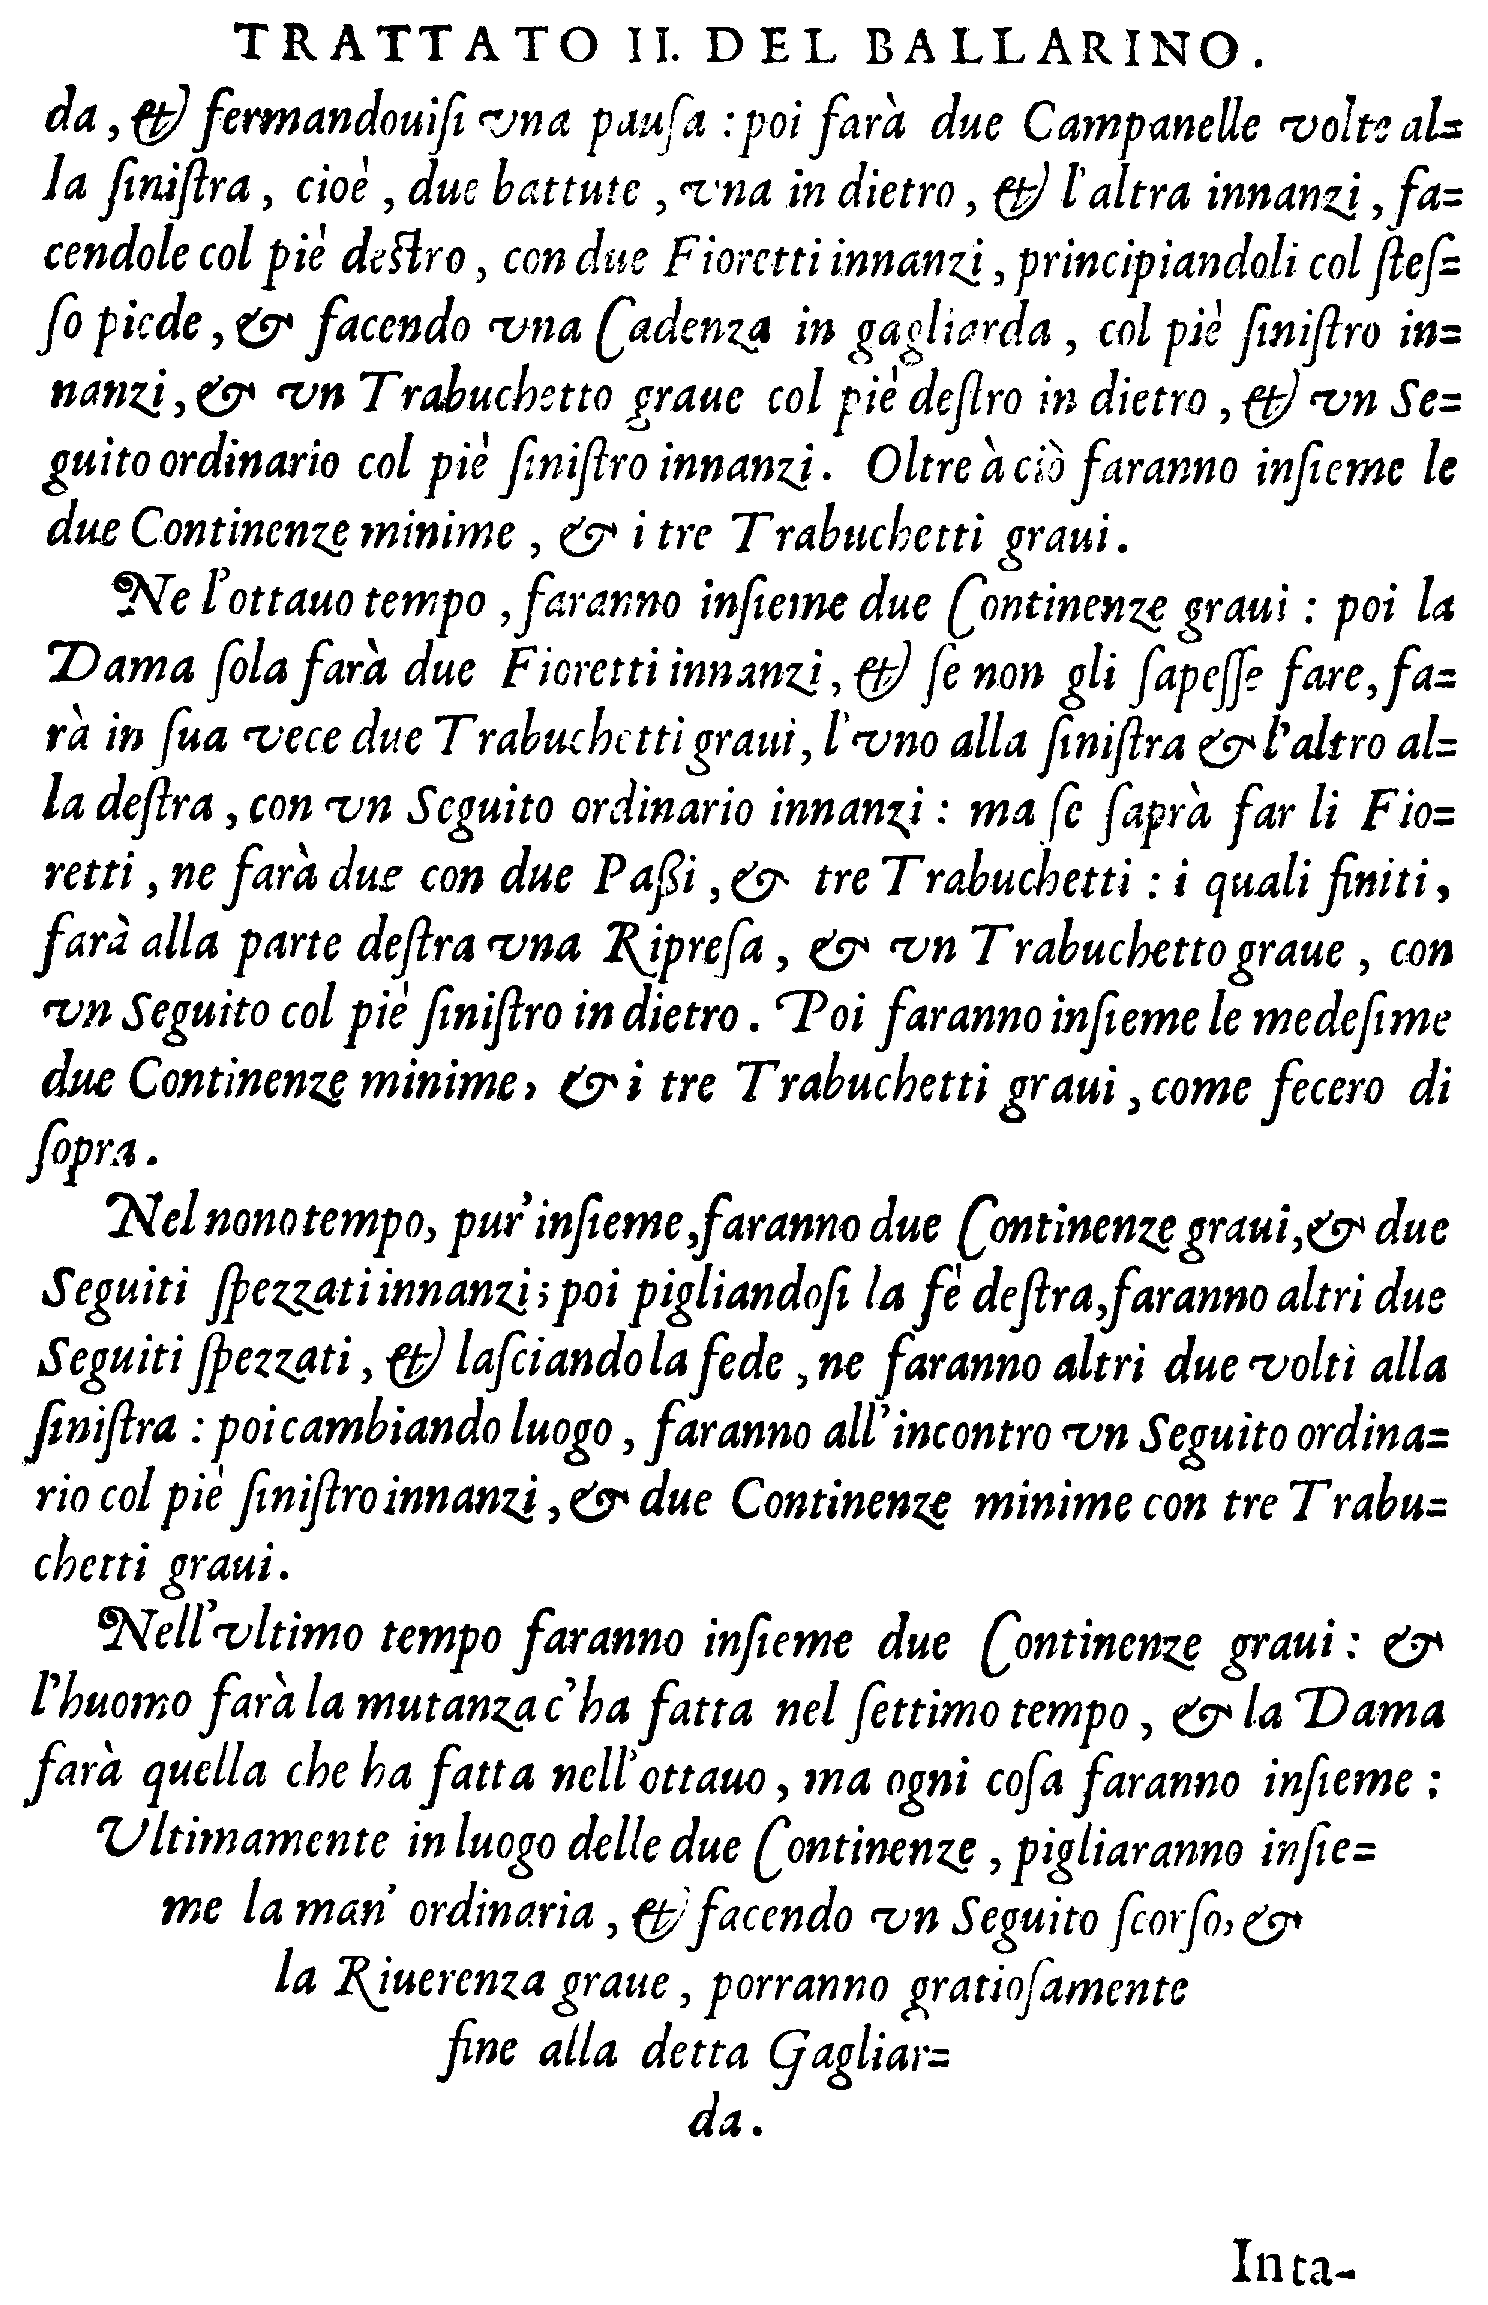 TRATTATO II. DEL BALLARINO.
da, & fermandouiſi vna pauſa : poi farà due Campanelle volte al=
la ſiniſtra, cioè, due battute, vna in dietro, & l'altra innanzi, fa=
cendole col piè deſtro, con due Fioretti innanzi, principiandoli col ſteſ=
ſo piede, & facendo vna Cadenza in gagliarda, col piè ſiniſtro in=
nanzi, & vn Trabuchetto graue col piè deſtro in dietro, & vn Se=
guito ordinario col piè ſiniſtro innanzi. Oltre à ciò faranno inſieme le
due Continenze minime, & i tre Trabuchetti graui.
Ne l'ottauo tempo, faranno inſieme due Continenze graui : poi la
Dama ſola farà due Fioretti innanzi, & ſe non gli ſapeſſe fare, fa=
rà in ſua vece due Trabuchetti graui, l'vno alla ſiniſtra & l'altro al=
la deſtra, con vn Seguito ordinario innanzi : ma ſe ſaprà far li Fio=
retti, ne farà due con due Paßi, & tre Trabuchetti : i quali finiti,
farà alla parte deſtra vna Ripreſa, & vn Trabuchetto graue, con
vn Seguito col piè ſiniſtro in dietro. Poi faranno inſieme le medeſime
due Continenze minime, & i tre Trabuchetti graui, come fecero di
ſopra.
Nel nono tempo, pur' inſieme, faranno due Continenze graui, & due
Seguiti ſpezzati innanzi; poi pigliandoſi la fè deſtra, faranno altri due
Seguiti ſpezzati, & laſciando la fede, ne faranno altri due volti alla
ſiniſtra : poi cambiando luogo, faranno all'incontro vn Seguito ordina=
rio col piè ſiniſtro innanzi, & due Continenze minime con tre Trabu=
chetti graui.
Nell'vltimo tempo faranno inſieme due Continenze graui : &
l'huomo farà la mutanza c'ha fatta nel ſettimo tempo, & la Dama
farà quella che ha fatta nell'ottauo, ma ogni coſa faranno inſieme :
Vltimamente in luogo delle due Continenze, pigliaranno inſie=
me la man' ordinaria, & facendo vn Seguito ſcorſo, &
la Riuerenza graue, porranno gratioſamente
fine alla detta Gagliar=
da.
Inta-